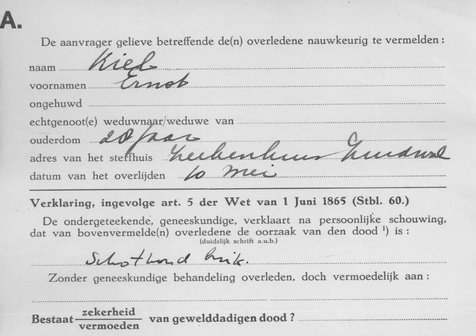 A.
De aanvrager gelieve betreffende de(n) overledene nauwkeurig te vermelden :
naam Kiel
voornamen Ernst
ongehuwd
echtgenoot(e) weduwnaar/weduwe van
ouderdom 20 jaar
adres van het sterfhuis Ziekenhuis Zuidwal
datum van het overlijden 10 Mei
Verklaring, ingevolge art. 5 der Wet van 1 Juni 1865 (Stbl. 60.)
De ondergeteekende, geneeskundige, verklaart na persoonlijke schouwing,
dat van bovenvermelde(n) overledene de oorzaak van den dood ¹) is :
(duidelijk schrift a.u.b.)
Schotwond
Zonder geneeskundige behandeling overleden, doch vermoedelijk aan :
Bestaat zekerheid
vermoeden van gewelddadigen dood ?